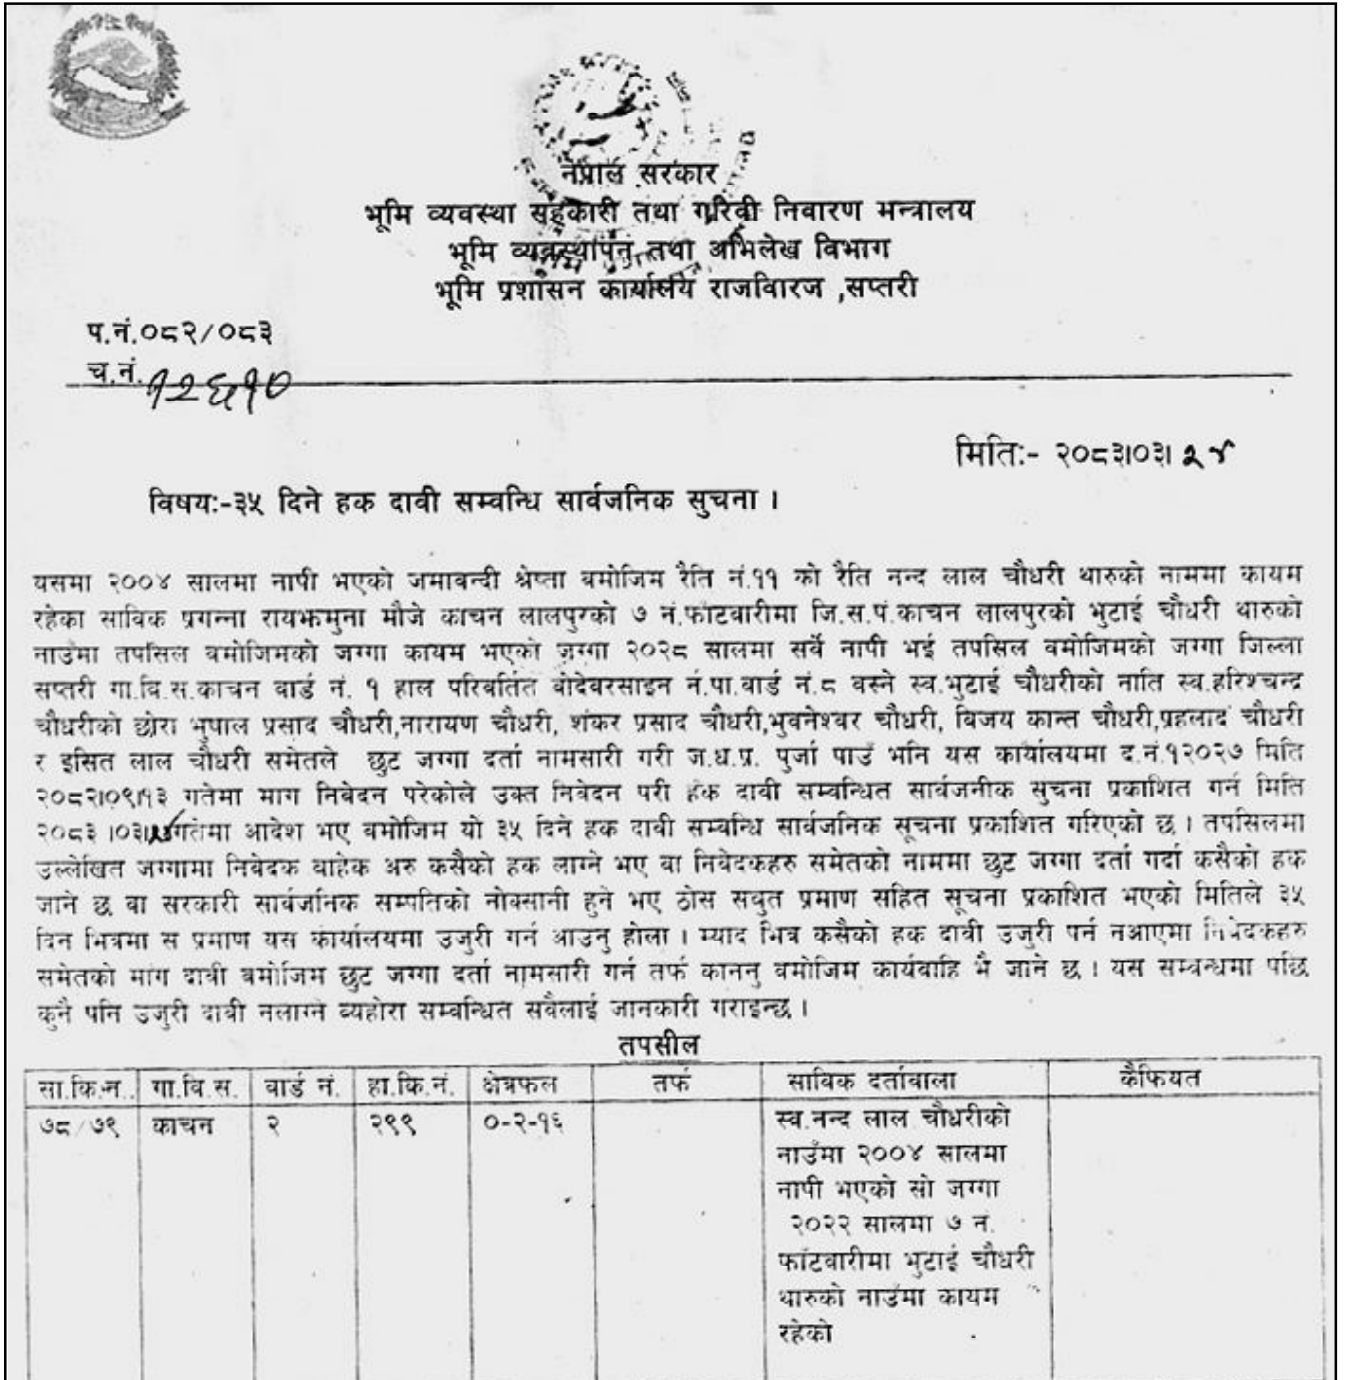 नेपाल सरकार
भूमि व्यवस्था सहकारी तथा गरिवी निवारण मन्त्रालय
भूमि व्यवस्थापन तथा अभिलेख विभाग
भूमि प्रशासन कार्यालय राजविारज ,सप्तरी
प.नं.०८२/०८३
च.नं. १२६१०
मिति:- २०८३।०३।२४
विषय:-३५ दिने हक दावी सम्वन्धि सार्वजनिक सुचना ।
यसमा २००४ सालमा नापी भएको जमाबन्दी श्रेष्ता बमोजिम रैति नं.११ को रैति नन्द लाल चौधरी थारुको नाममा कायम
रहेका साविक प्रगन्ना रायझमुना मौजे काचन लालपुरको ७ नं.फाँटवारीमा जि.स.पं.काचन लालपुरको भुटाई चौधरी थारुको
नाउँमा तपसिल बमोजिमको जग्गा कायम भएको जग्गा २०२८ सालमा सर्वे नापी भई तपसिल बमोजिमको जग्गा जिल्ला
सप्तरी गा.वि.स.काचन वार्ड नं. १ हाल परिवर्तित बोदेबरसाइन न.पा.वार्ड नं.८ वस्ने स्व.भुटाई चौधरीको नाति स्व.हरिश्चन्द्र
चौधरीको छोरा भुपाल प्रसाद चौधरी,नारायण चौधरी, शंकर प्रसाद चौधरी,भुवनेश्वर चौधरी, बिजय कान्त चौधरी,प्रहलाद चौधरी
र इसित लाल चौधरी समेतले छुट जग्गा दर्ता नामसारी गरी ज.ध.प्र. पुर्जा पाउँ भनि यस कार्यालयमा द.नं.१२०२७ मिति
२०८२।०९।१३ गतेमा माग निबेदन परेकोले उक्त निवेदन परी हक दावी सम्वन्धित सार्बजनीक सुचना प्रकाशित गर्न मिति
२०८३।०३। गतेमा आदेश भए बमोजिम यो ३५ दिने हक दावी सम्वन्धि सार्वजनिक सूचना प्रकाशित गरिएको छ । तपसिलमा
उल्लेखित जग्गामा निबेदक वाहेक अरु कसैको हक लाग्ने भए वा निवेदकहरु समेतको नाममा छुट जग्गा दर्ता गर्दा कसैको हक
जाने छ वा सरकारी सार्वजनिक सम्पतिको नोक्सानी हुने भए ठोस सबुत प्रमाण सहित सूचना प्रकाशित भएको मितिले ३५
दिन भित्रमा स प्रमाण यस कार्यालयमा उजुरी गर्न आउनु होला । म्याद भित्र कसैको हक दावी उजुरी पर्न नआएमा निवेदकहरु
समेतको मांग दावी बमोजिम छुट जग्गा दर्ता नामसारी गर्न तर्फ काननु वमोजिम कार्यवाहि भै जाने छ । यस सम्वन्धमा पछि
कुनै पनि उजुरी दावी नलाग्ने व्यहोरा सम्वन्धित सवैलाई जानकारी गराइन्छ ।
तपसील
सा.कि.न. गा.वि.स. वार्ड नं. हा.कि.नं. क्षेत्रफल तर्फ साविक दर्तावाला कैफियत
७८/७९ काचन २ २९९ ०-२-१६ स्व.नन्द लाल चौधरीको
नाउँमा २००४ सालमा
नापी भएको सो जग्गा
२०२२ सालमा ७ न.
फाँटवारीमा भुटाई चौधरी
थारुको नाउँमा कायम
रहेको